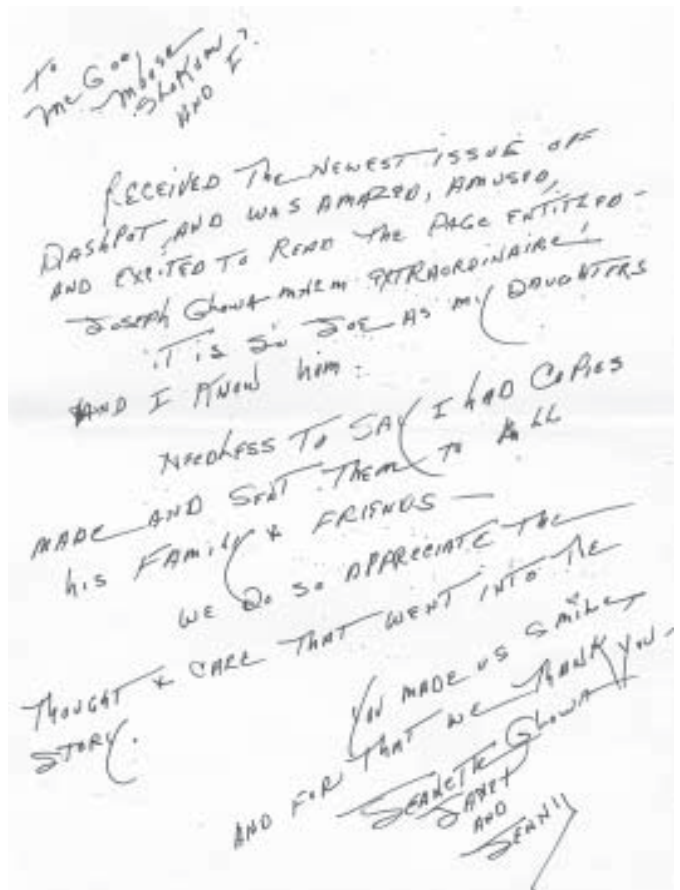 To
McGoo,
Moose
Shokum?
AND I
RECEIVED The NEWEST ISSUE OFF
DASHPOT AND WAS AMAZED, AMUSED,
AND EXCITED TO READ THE PAGE ENTITLED -
JOSEPH GLOWA MNEM EXTRAORDINAIRE!
IT IS SO JOE AS MY DAUGHTERS
AND I KNOW him.
NEEDLESS TO SAY I HAD COPIES
MADE AND SENT THEM TO ALL
his FAMILY & FRIENDS —
WE DO SO APPRECIATE THE
THOUGHT & CARE THAT WENT INTO THE
STORY.
YOU MADE US SMILE
AND FOR THAT WE THANK YOU -
JEANETTE GLOWA
JANET
AND
JENNY